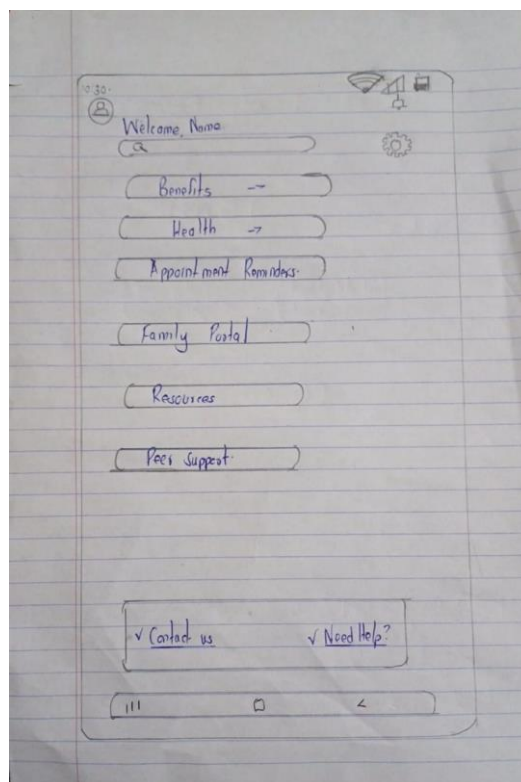 Welcome, Name
Benefits →
Health →
Appointment Reminders.
Family Portal
Resources
Peer Support.
✓ Contact us
✓ Need Help?